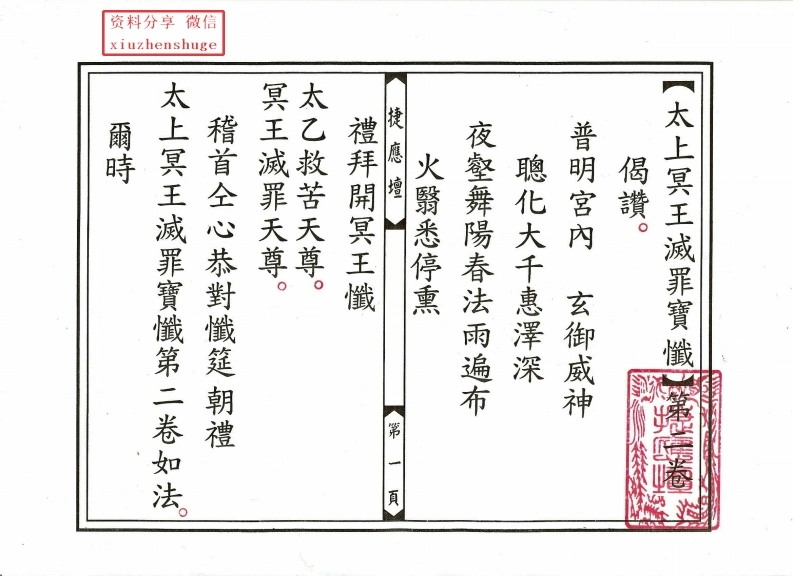 资料分享 微信
xiuzhenshuge
【太上冥王滅罪寶懺】第二卷
偈讚。
普明宮內 玄御威神
聰化大千惠澤深
夜壑舞陽春法雨遍布
火翳悉停熏
捷應壇
第一頁
禮拜開冥王懺
太乙救苦天尊。
冥王滅罪天尊。
稽首仝心恭對懺筵 朝禮
太上冥王滅罪寶懺第二卷如法。
爾時